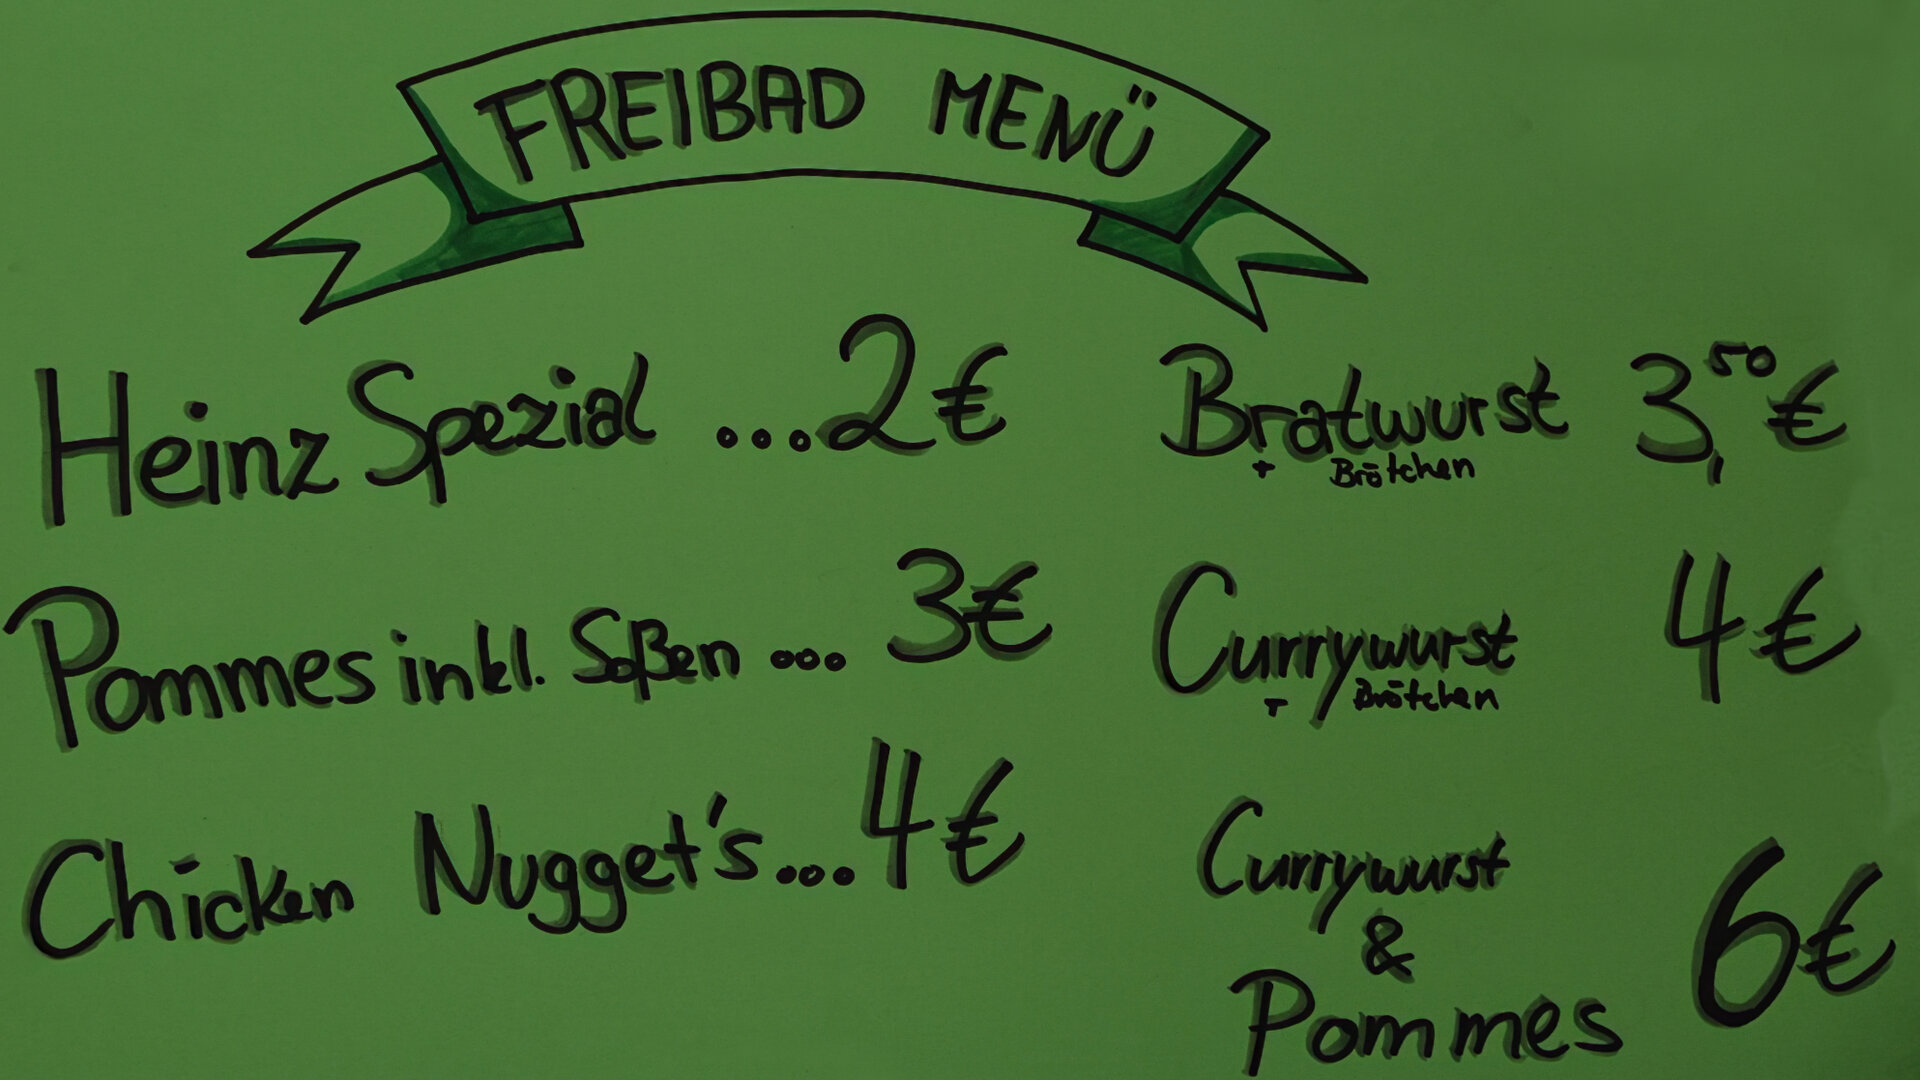 FREIBAD MENÜ
Heinz Spezial ...2€
Pommes inkl. Soßen ... 3€
Chicken Nugget's...4€
Bratwurst 3,50€
+ Brötchen
Currywurst 4€
+ Brötchen
Currywurst
&
Pommes 6€